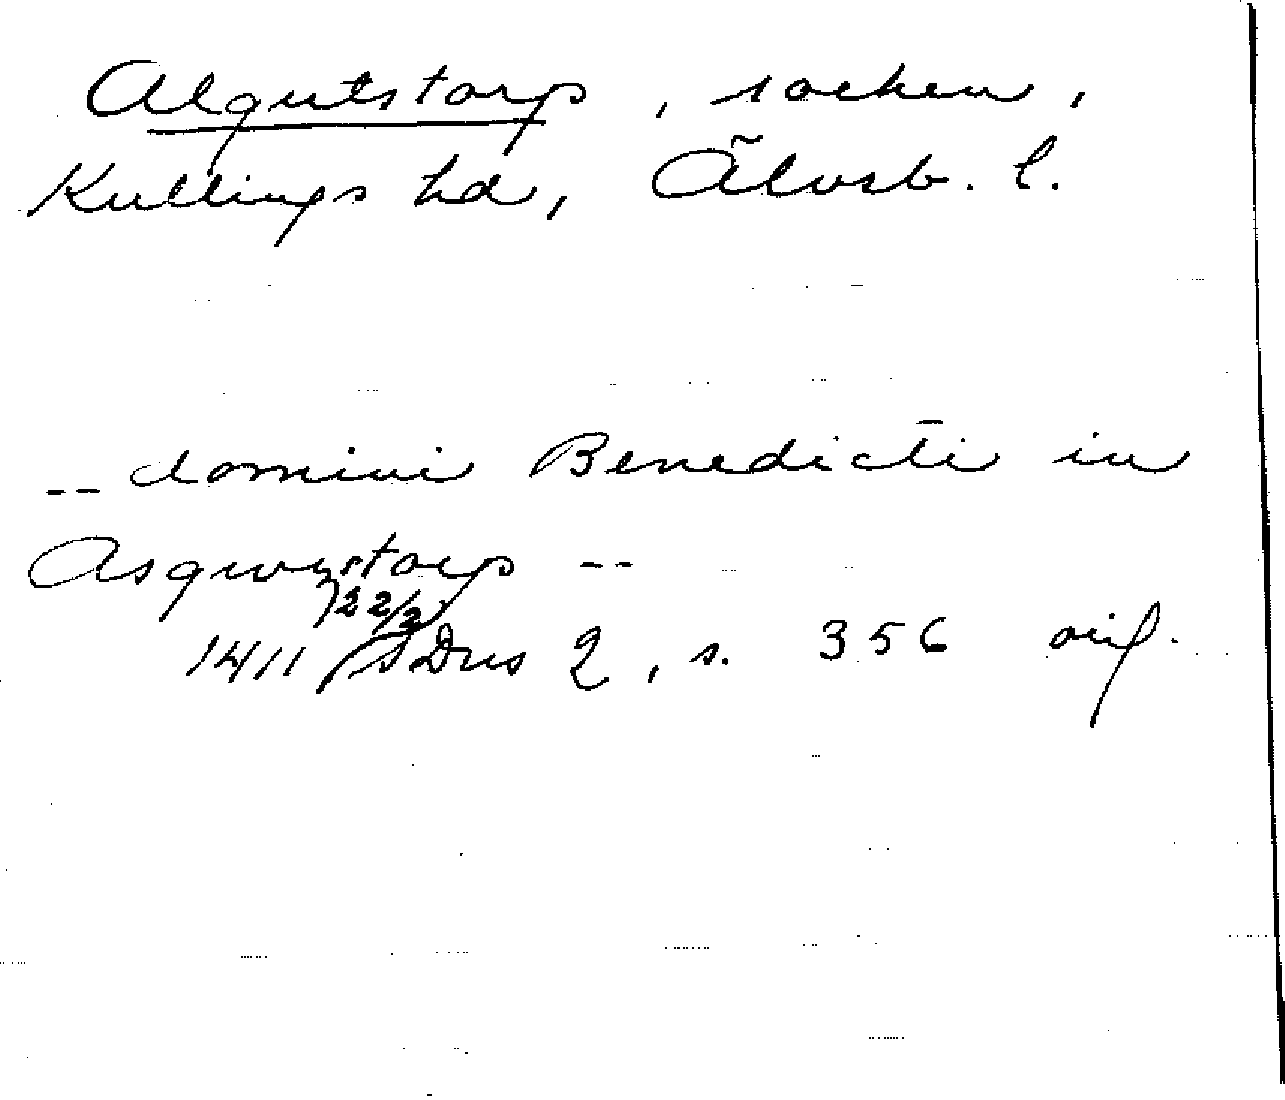 Algutstorp, socken,
Kullings hd, Älvsb. l.
-- domini Benedicti in
Asgwzstorp --
1411 22/2 SDns 2, s. 356 orig.